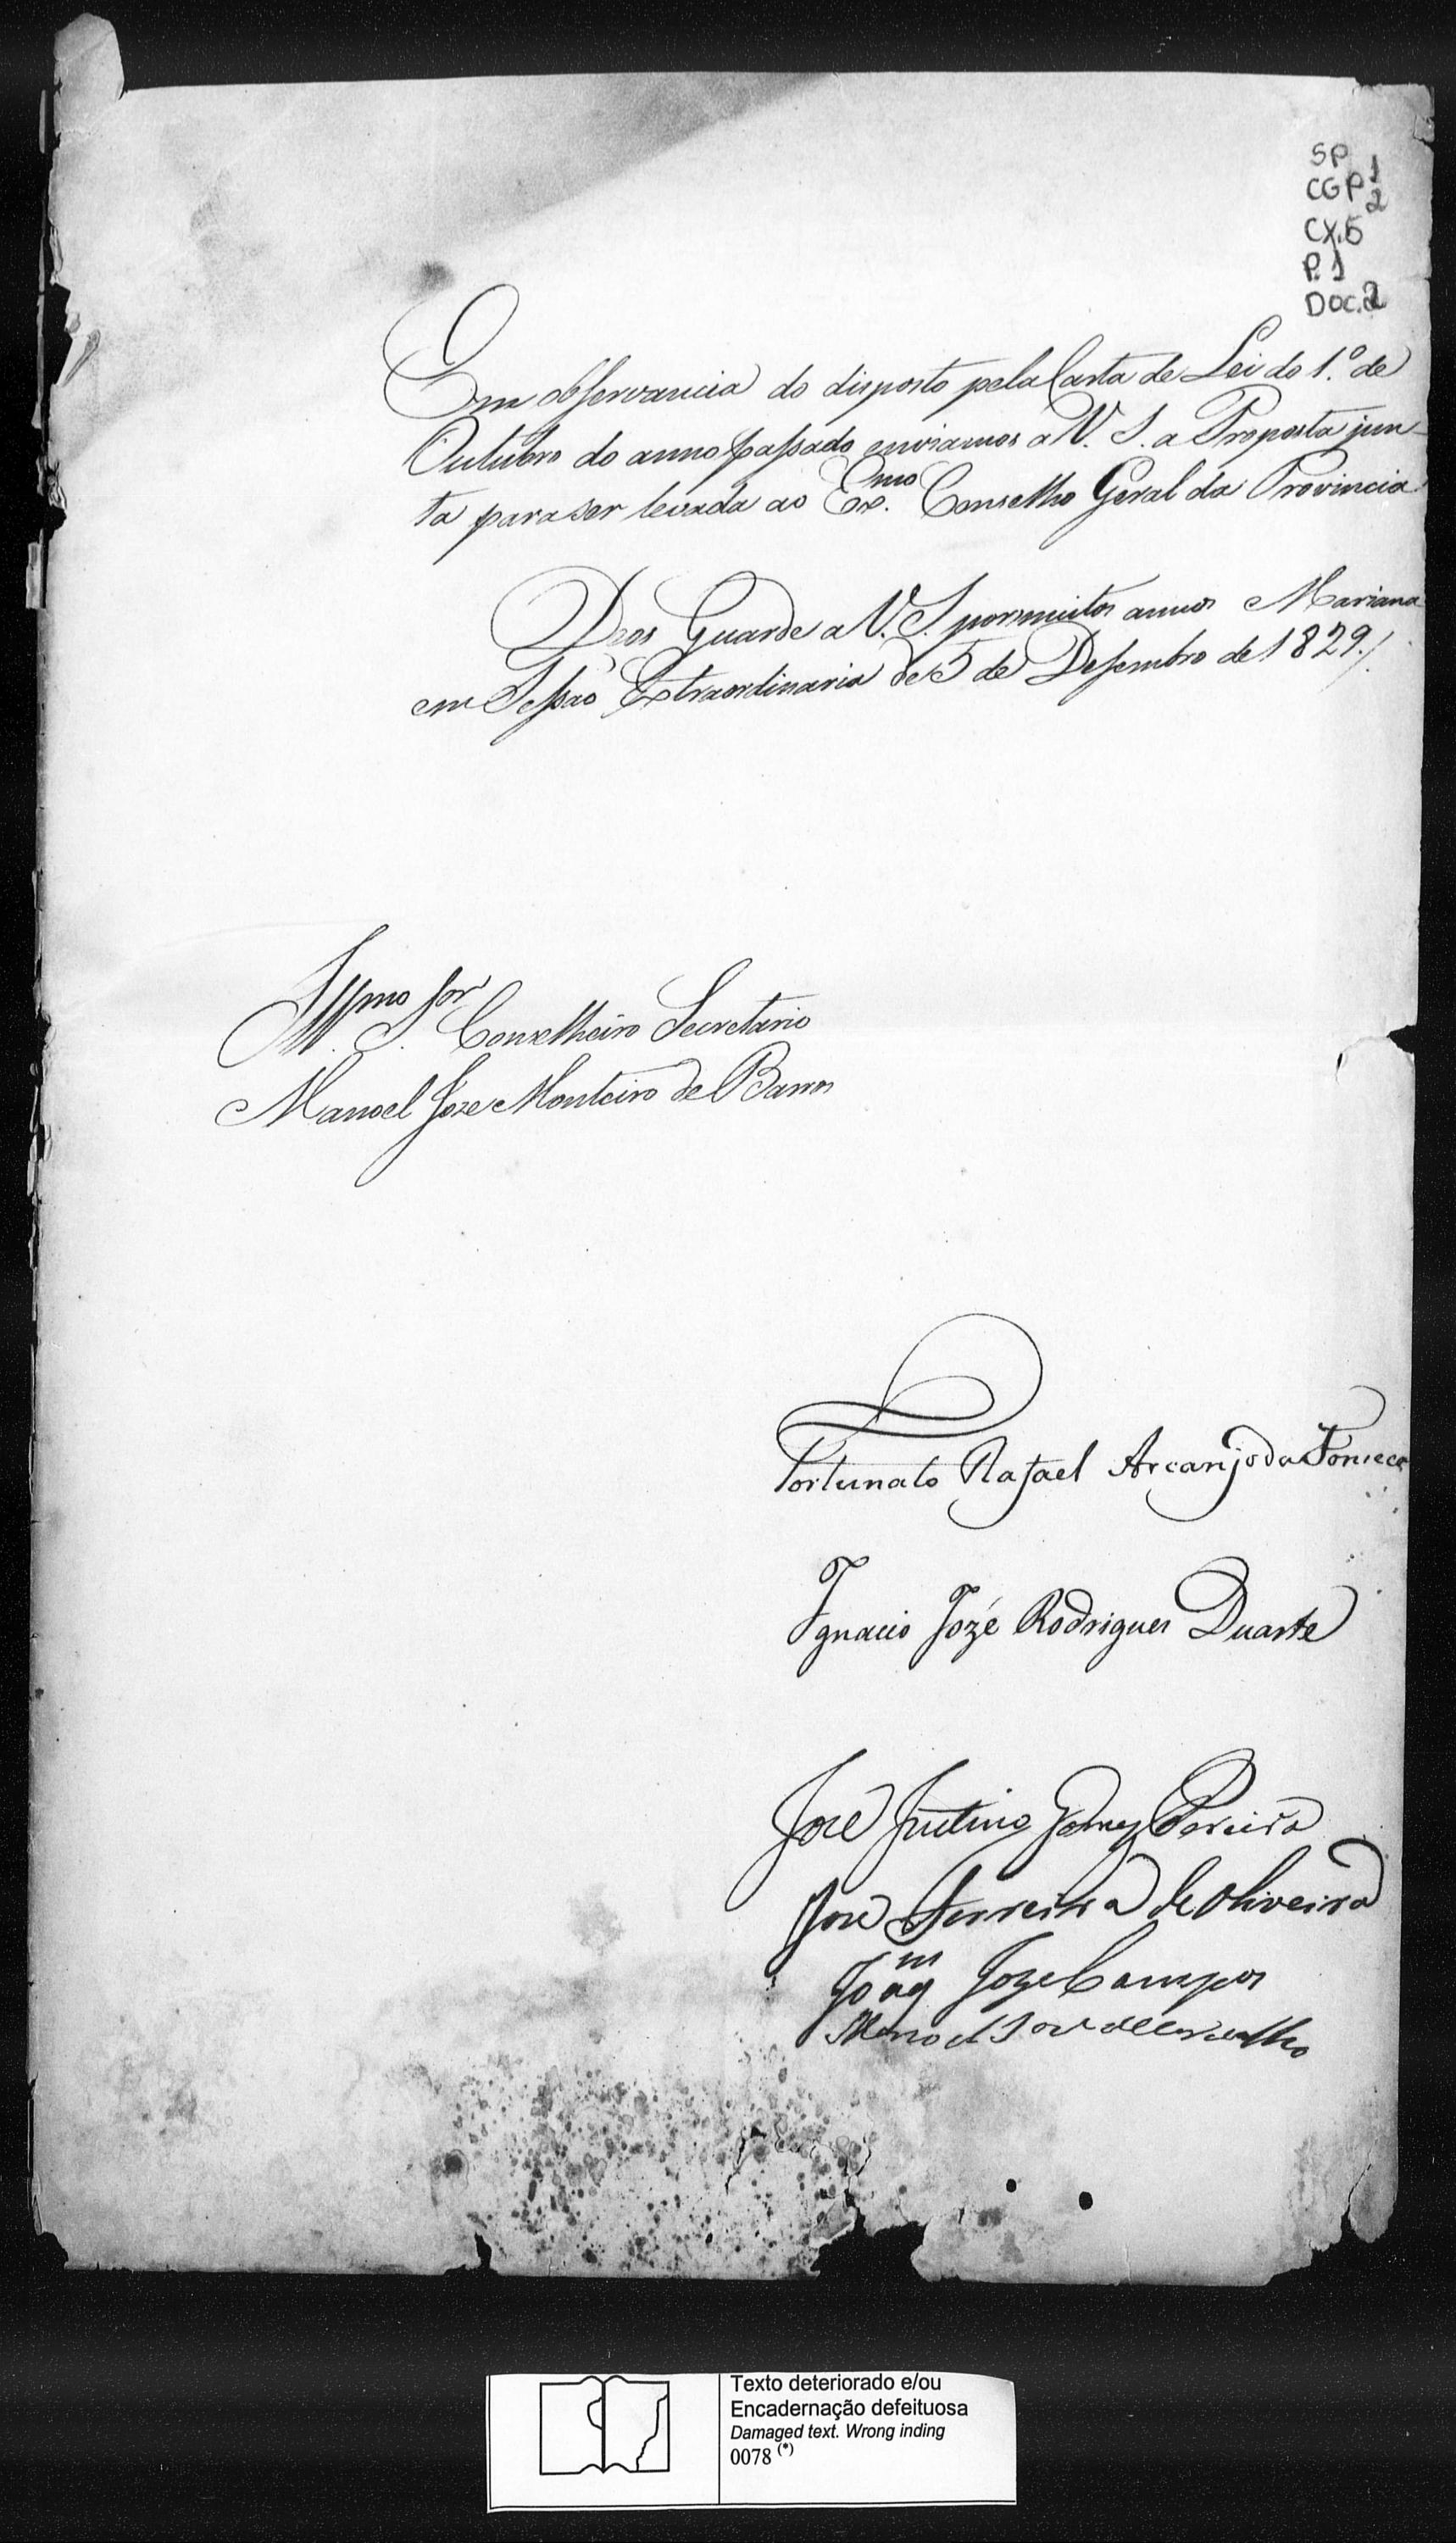 SP
CGP 1
2
CX.5
P.1
DOC.2
Em observancia do disposto pela Carta de Lei do 1.º de
Outubro do anno passado enviamos a V. S. a Proposta jun-
ta para ser levada ao Ex.mo Conselho Geral da Provincia.
Deos Guarde a V. S. por muitos annos Mariana
em Sessaõ Extraordinaria de 5 de Desembro de 1829./.
Ill.mo Snr. Conselheiro Secretario
Manoel Joze Monteiro de Barros
Fortunato Rafael Arcanjo da Fonseca
Ignacio Jozé Rodrigues Duarte
José Justino Gomes Pereira
José Ferreira de Oliveira
Joaqm Joze Campos
Manoel José de Carvalho
Texto deteriorado e/ou
Encadernação defeituosa
Damaged text. Wrong inding
0078 (*)